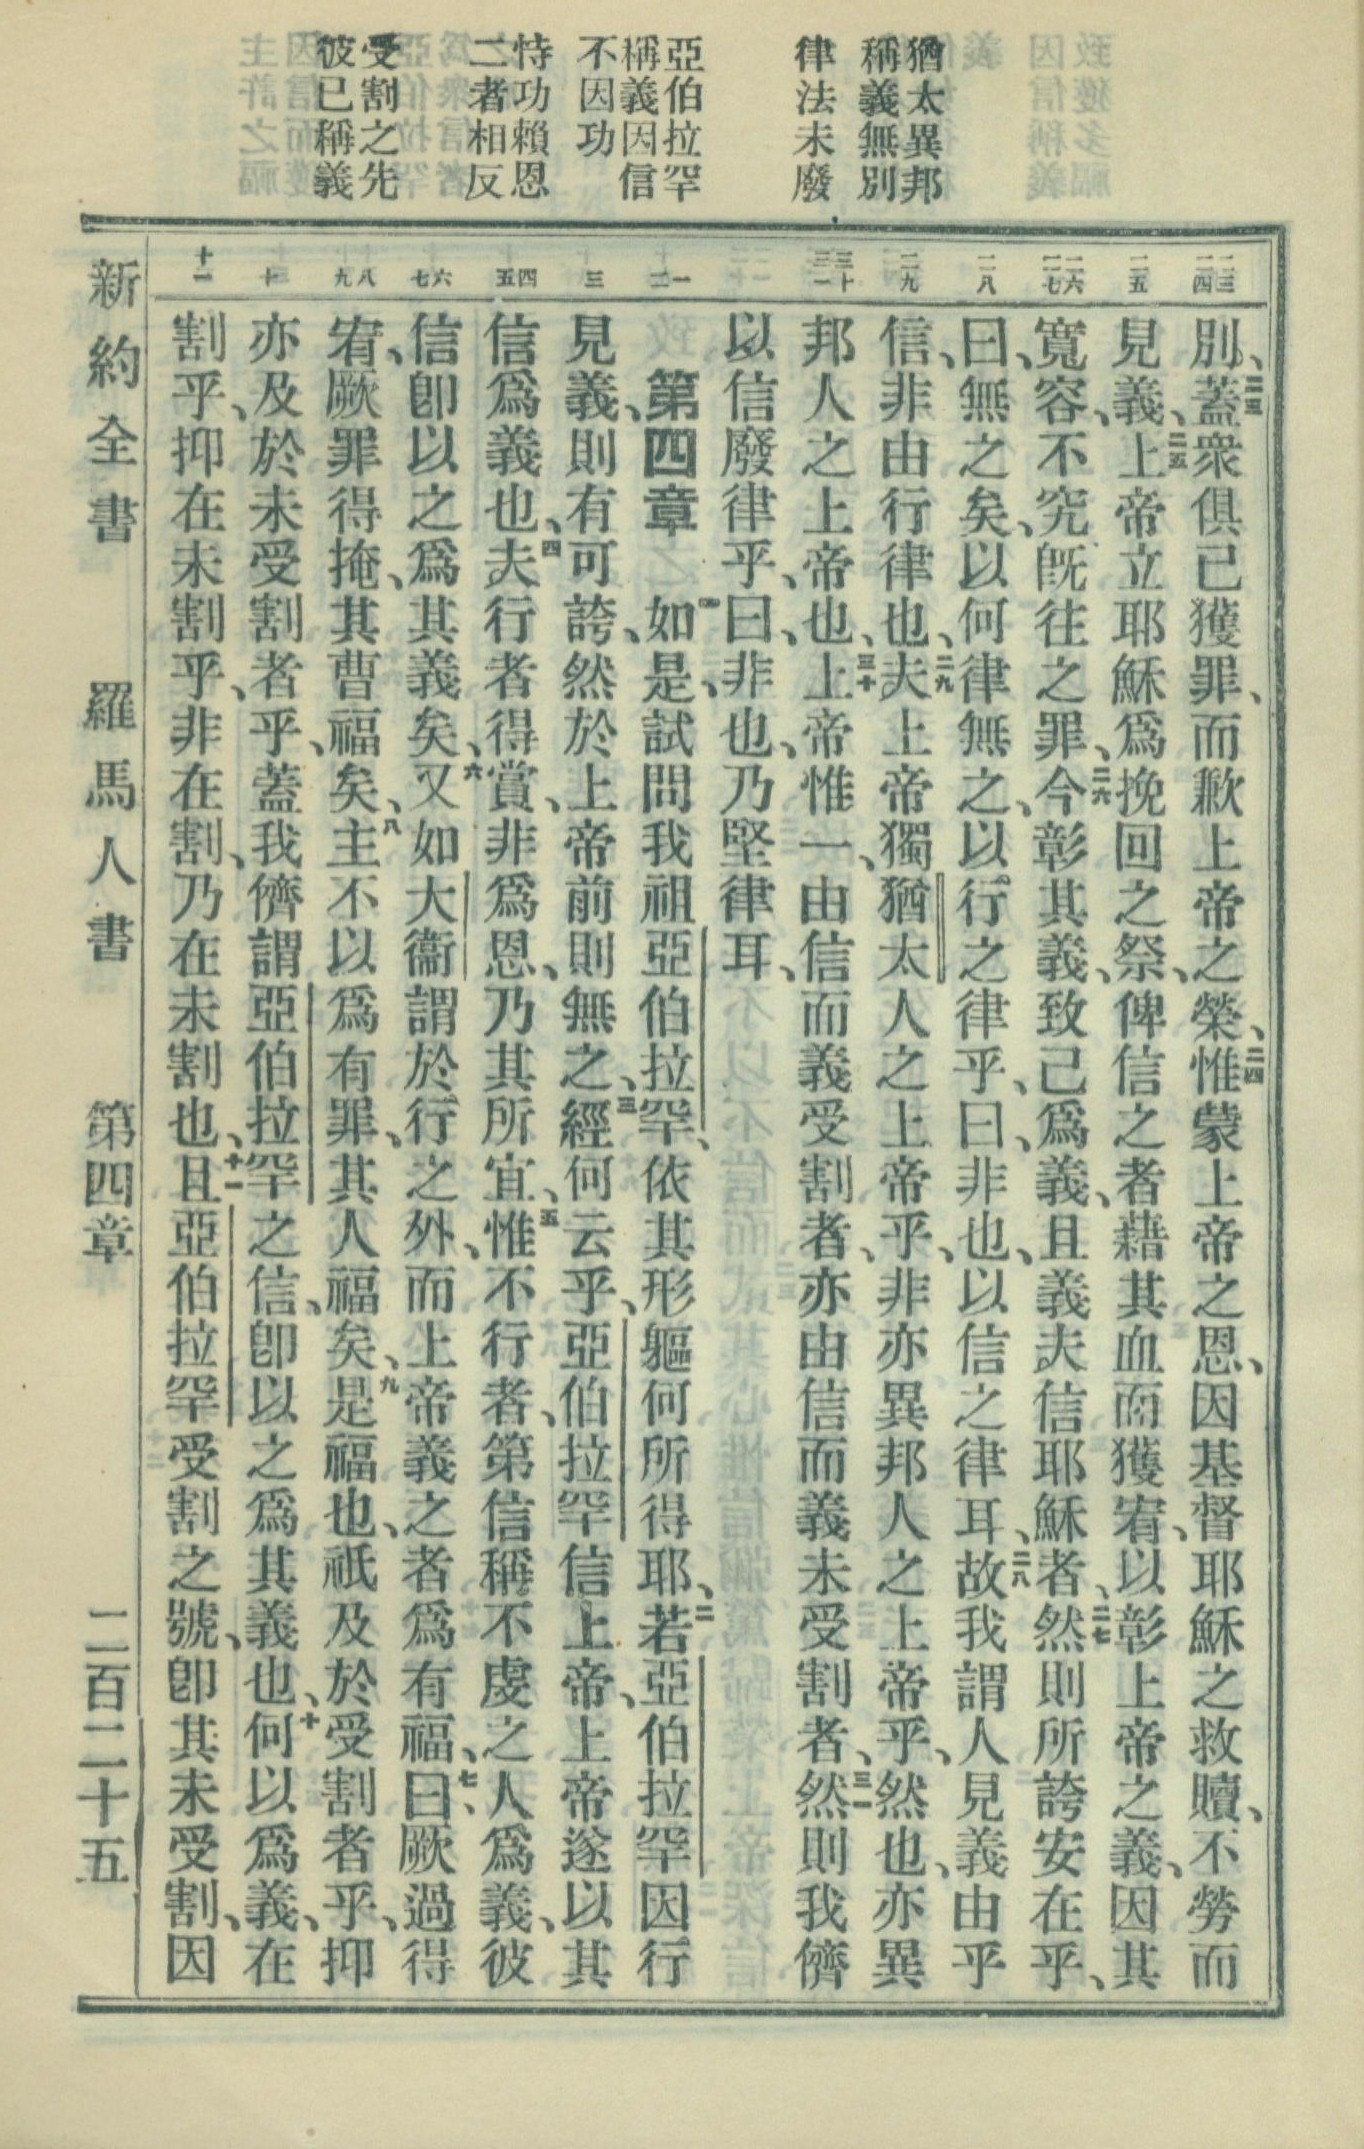 猶太異邦
稱義無別
律法未廢
亞伯拉罕
稱義因信
不因功
恃功賴恩
二者相反
受割之先
彼已稱義
二三 二四
二五
二六 二七
二八
二九
三十 三一
一 二
三
四 五
六 七
八 九
十
十一
別、二三蓋衆俱已獲罪、而歉上帝之榮、二四惟蒙上帝之恩、因基督耶穌之救贖、不勞而
見義、二五上帝立耶穌爲挽回之祭、俾信之者藉其血而獲宥、以彰上帝之義、因其
寬容、不究旣往之罪、二六今彰其義、致己爲義、且義夫信耶穌者、二七然則所誇安在乎、
曰、無之矣、以何律無之、以行之律乎、曰、非也、以信之律耳、二八故我謂人見義由乎
信、非由行律也、二九夫上帝獨猶太人之上帝乎、非亦異邦人之上帝乎、然也、亦異
邦人之上帝也、三十上帝惟一、由信而義受割者、亦由信而義未受割者、三一然則我儕
以信廢律乎、曰、非也、乃堅律耳、
第四章 一如是、試問我祖亞伯拉罕、依其形軀何所得耶、二若亞伯拉罕因行
見義、則有可誇、然於上帝前則無之、三經何云乎、亞伯拉罕信上帝、上帝遂以其
信爲義也、四夫行者得賞、非爲恩、乃其所宜、五惟不行者、第信稱不虔之人爲義、彼
信卽以之爲其義矣、六又如大衞謂於行之外、而上帝義之者爲有福、七曰、厥過得
宥、厥罪得掩、其曹福矣、八主不以爲有罪、其人福矣、九是福也、祇及於受割者乎、抑
亦及於未受割者乎、蓋我儕謂亞伯拉罕之信、卽以之爲其義也、十何以爲義、在
割乎、抑在未割乎、非在割、乃在未割也、十一且亞伯拉罕受割之號、卽其未受割、因
新約全書 羅馬人書 第四章 二百二十五